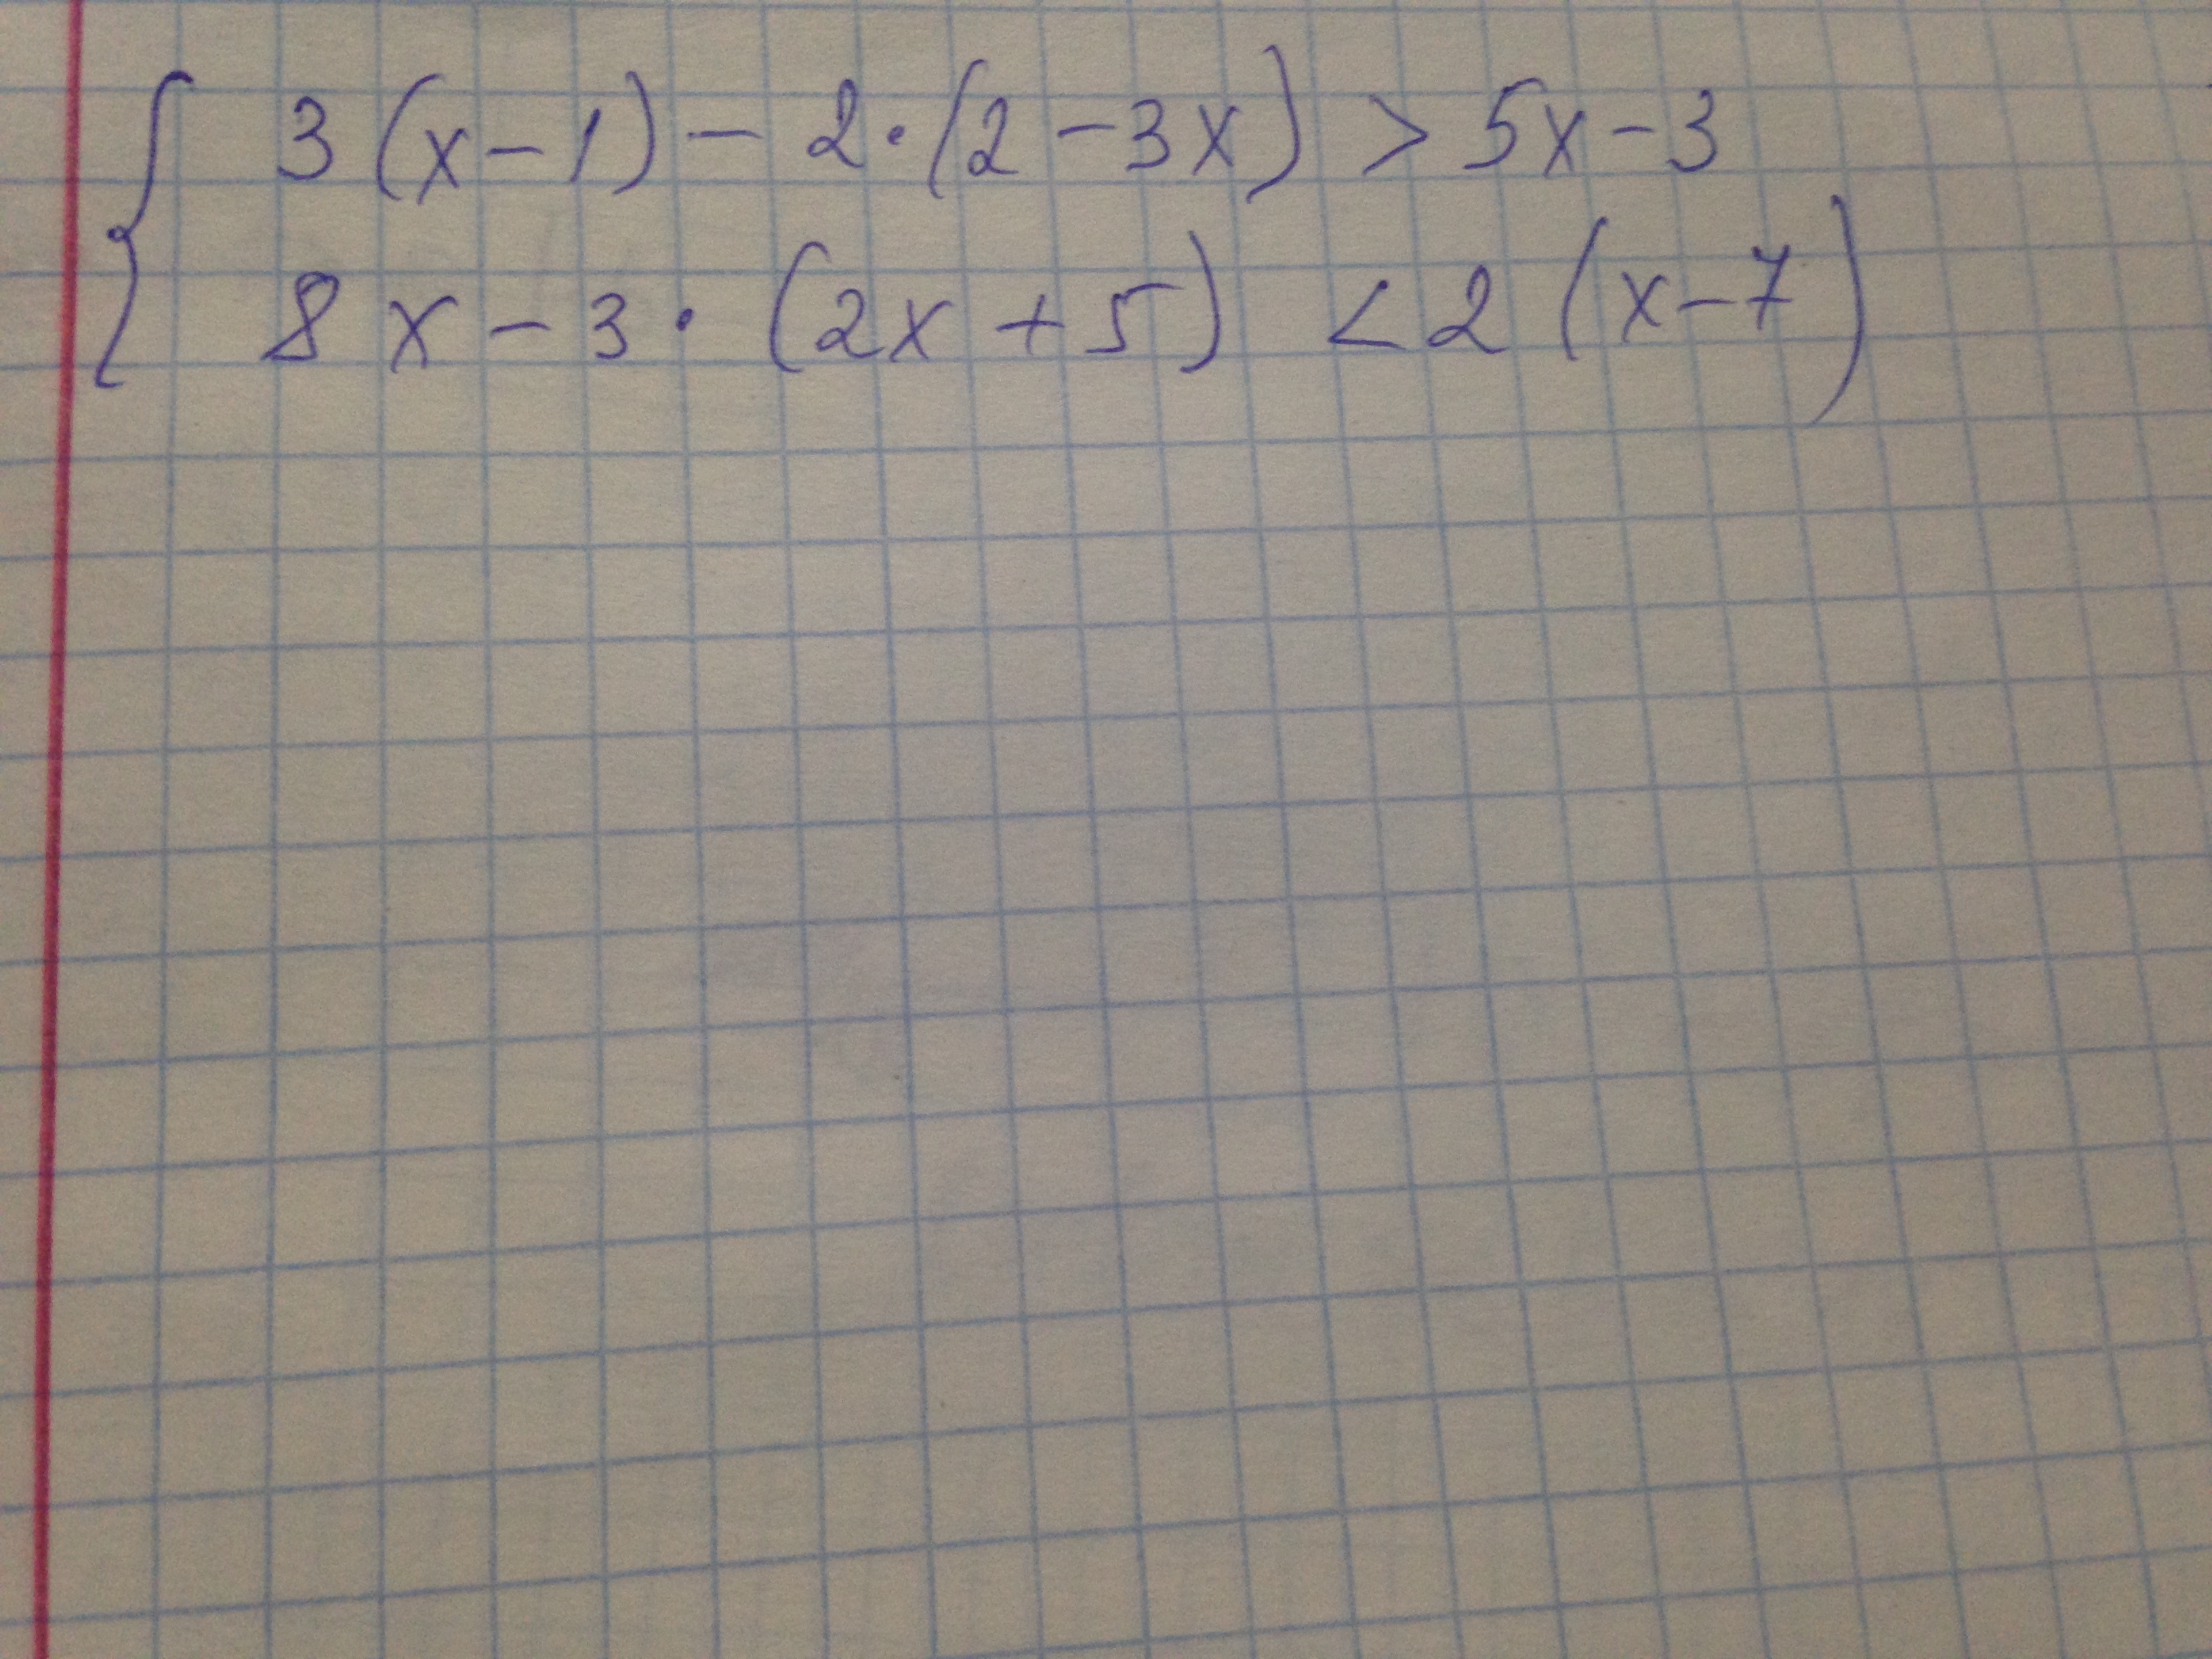 { 3(x-1)-2·(2-3x)>5x-3
8x-3·(2x+5)<2(x-7)